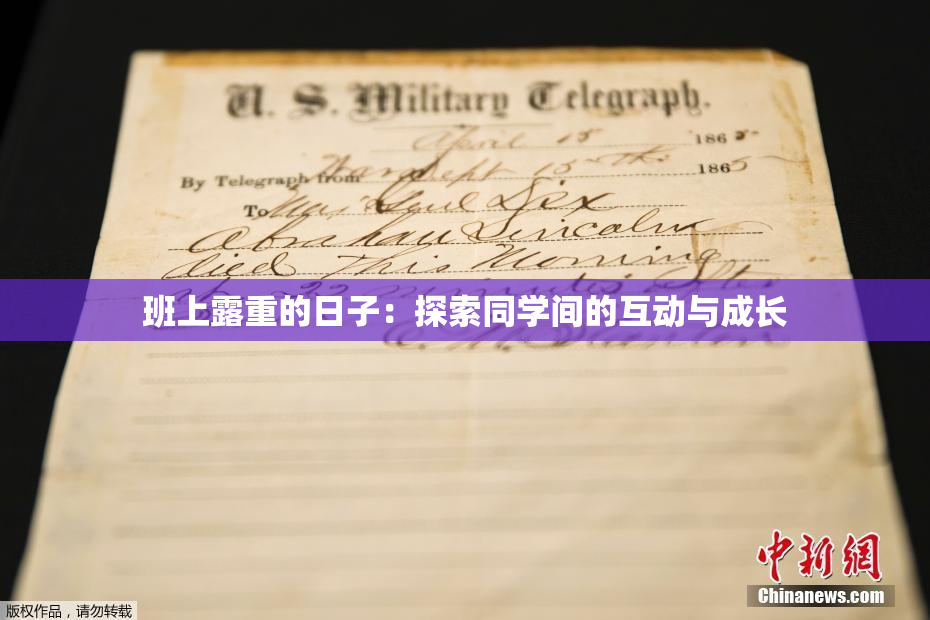 U. S. Military Telegraph.
April 15 1865
By Telegraph from War Dept 15th 1865
To Maj Genl Dix
Abraham Lincoln
died this Morning
班上露重的日子：探索同学间的互动与成长
中新网
Chinanews.com
版权作品，请勿转载